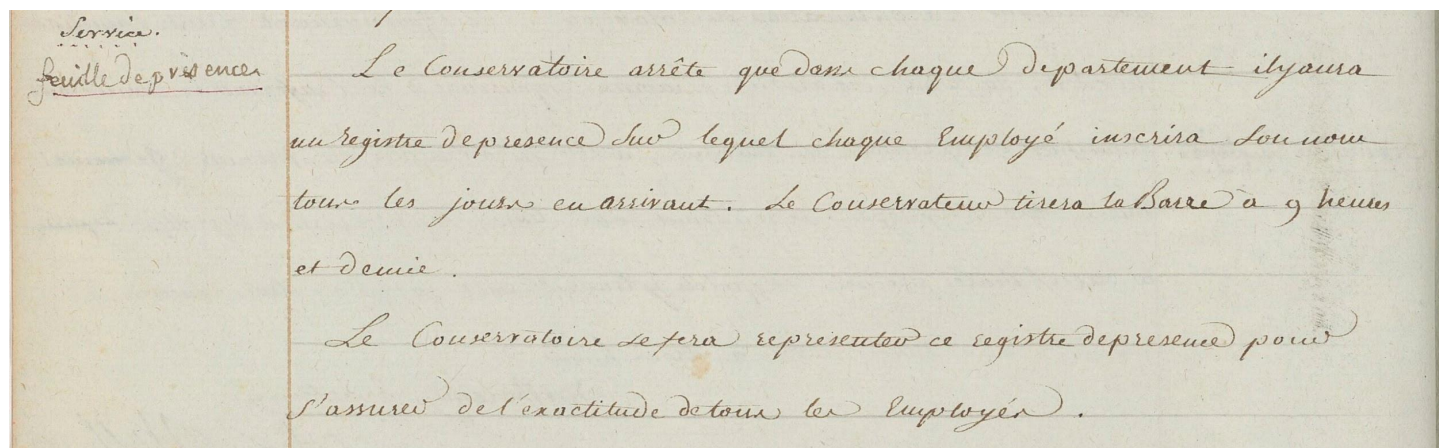 Service.
feuille de présence
Le Conservatoire arrête que dans chaque departement il y aura
un registre de presence sur lequel chaque Employé inscrira son nom
tous les jours en arrivant. Le Conservateur tirera la Barre à 9 heures
et demie.
Le Conservatoire se fera representer ce registre de presence pour
s'assurer de l'exactitude de tous les Employés.